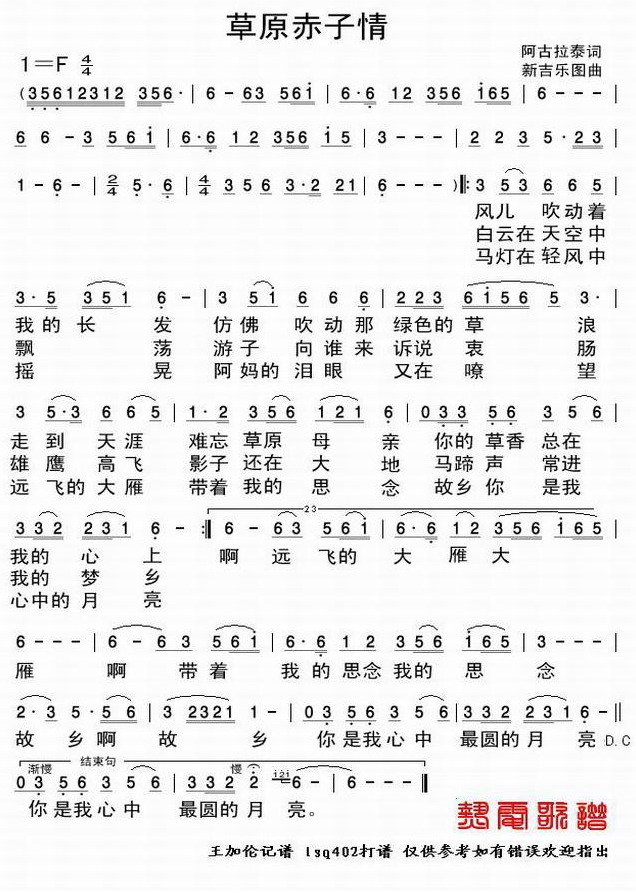 草原赤子情
阿古拉泰词
1=F 4/4
新吉乐图曲
(35612312 356· | 6 - 63 561̇ | 6·6 12 356 1̇65 | 6 - - - |
6 6 - 3 561̇ | 6·6 12 356 1̇5 | 3 - - - | 2 2 3 5·23 |
1 - 6 - | 2/4 5·6 | 4/4 356 3·2 21 | 6 - - - )‖: 3 53 6 6 5 |
风儿 吹动着
白云在天空中
马灯在轻风中
3·5 351 6 - | 3 51̇ 6 6 6 | 223 61̇56 5 3· |
我的长 发 仿佛 吹动那 绿色的草 浪
飘 荡 游子 向谁来 诉说 衷 肠
摇 晃 阿妈的泪眼 又在 嘹 望
3 5·3 6 65 | 1·2 356 121 6 | 033 56 3 56 |
走到 天涯 难忘草原 母 亲 你的草香总在
雄鹰 高飞 影子还在大 地 马蹄声 常进
远飞的大雁 带着我的思 念 故乡你 是我
332 231 6 - :‖ 6 - 63 561̇ | 6·6 12 356 1̇65 |
23
我的 心 上 啊 远飞的 大 雁大
我的 梦 乡
心中的月 亮
6 - - - | 6 - 63 561̇ | 6·6 12 356 1̇65 | 3 - - - |
雁 啊 带着 我的思念我的思 念
2·3 5·5 - | 3 2321 1 - | 03 56 3 56 | 332 231 6 - ‖
故乡啊 故 乡 你是我心中 最圆的月 亮 D.C
渐慢 结束句 慢
03 56 3 56 | 332 2 1̇21̇ 6 - | 6 - - - ‖
你是我心中 最圆的月 亮。
王加伦记谱 lsq402打谱 仅供参考如有错误欢迎指出